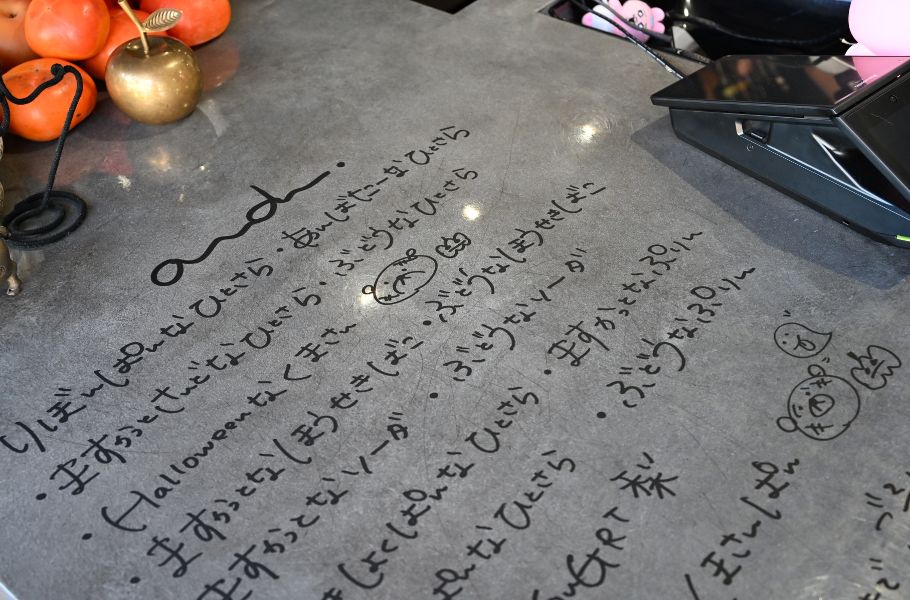 and.
りぼんぱんなひとさら・あんばたーなひとさら
・ますかっとさんどなひとさら・ぶどうなひとさら
・Halloweenなくまさん
・ますかっとなほうせきばこ・ぶどうなほうせきばこ
ますかっとなソーダ・ぶどうなソーダ
しょくぱんなひとさら・ますかっとなぷりん
ぱんなひとさら・ぶどうなぷりん
GRT 梨
くまさんぱん